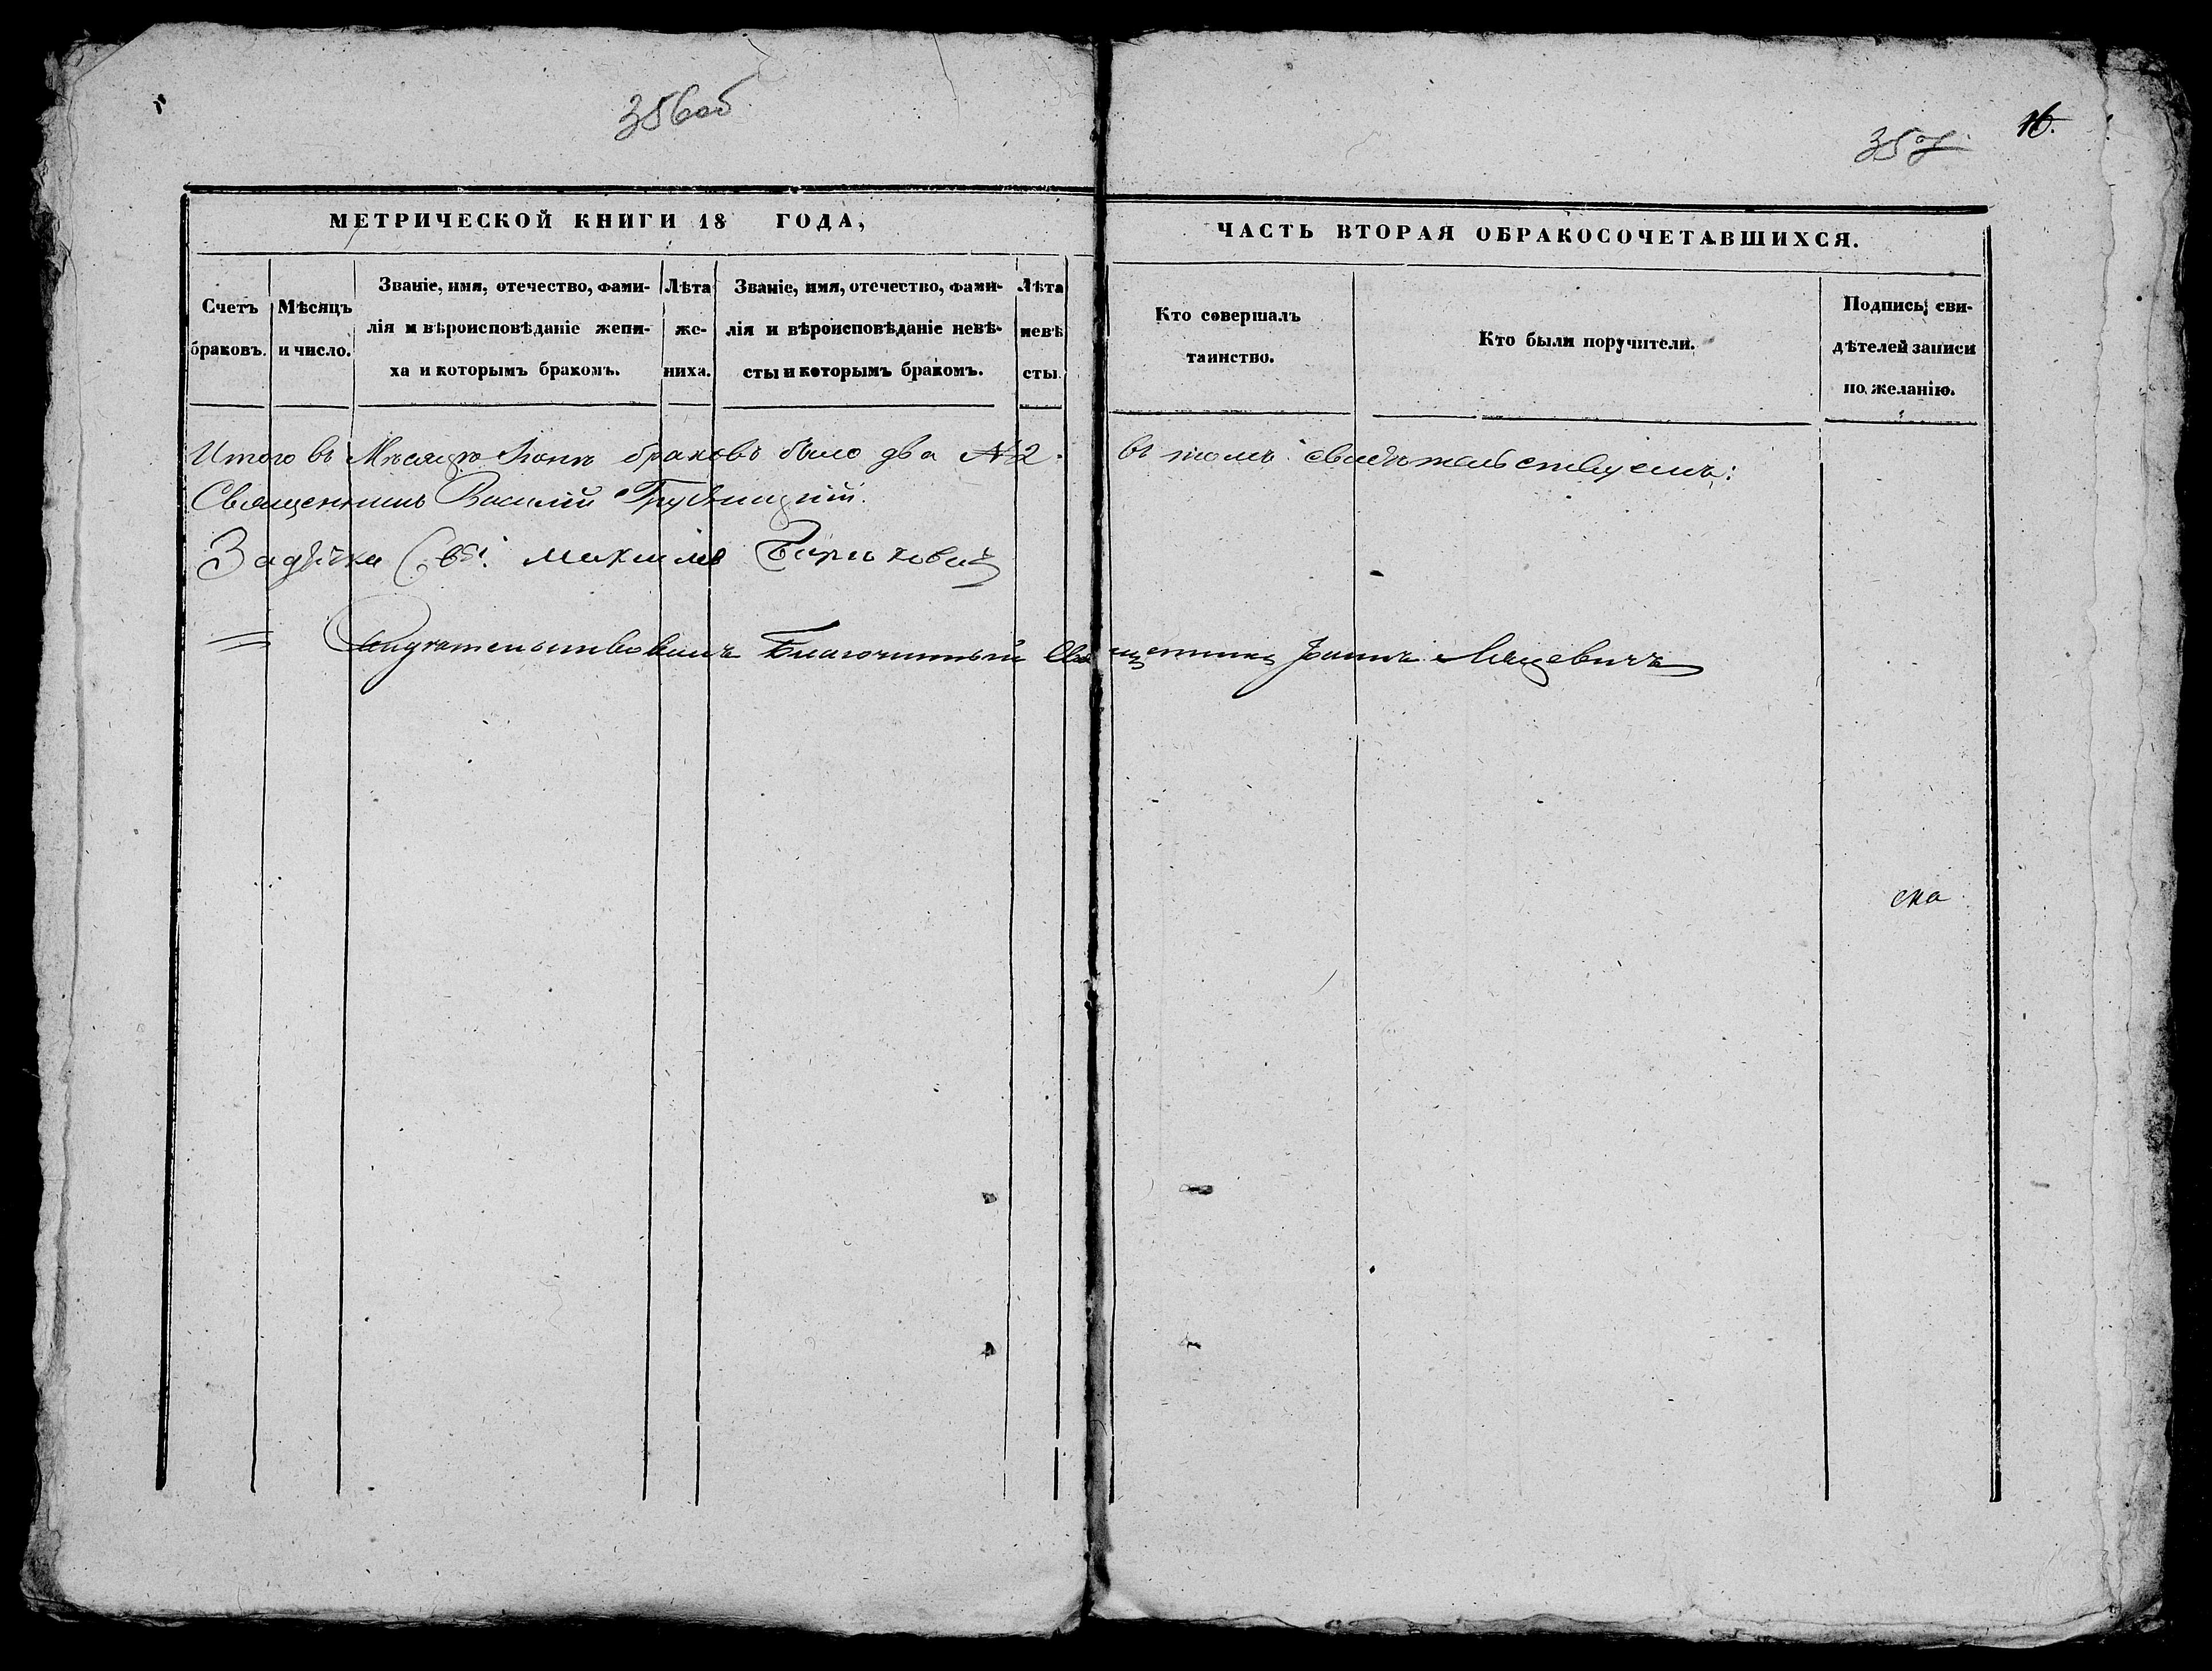 356об
357
16.
МЕТРИЧЕСКОЙ КНИГИ 18 ГОДА,
ЧАСТЬ ВТОРАЯ ОБРАКОСОЧЕТАВШИХСЯ.
Счетъ браковъ.
Мѣсяцъ и число.
Званіе, имя, отечество, фами-
лія и вѣроисповѣданіе жени-
ха и которымъ бракомъ.
Лѣта
же-
ниха.
Званіе, имя, отечество, фами-
лія и вѣроисповѣданіе невѣ-
сты и которымъ бракомъ.
Лѣта
невѣ
сты.
Кто совершалъ
таинство.
Кто были поручители.
Подпись сви-
дѣтелей записи
по желанію.
Итого въ Мѣсяцѣ Іюнѣ браковъ было два №2. въ томъ свидѣтельствуемъ:
Священникъ Василій
Благочинный Священникъ Іоаннъ Мацевичъ
ска